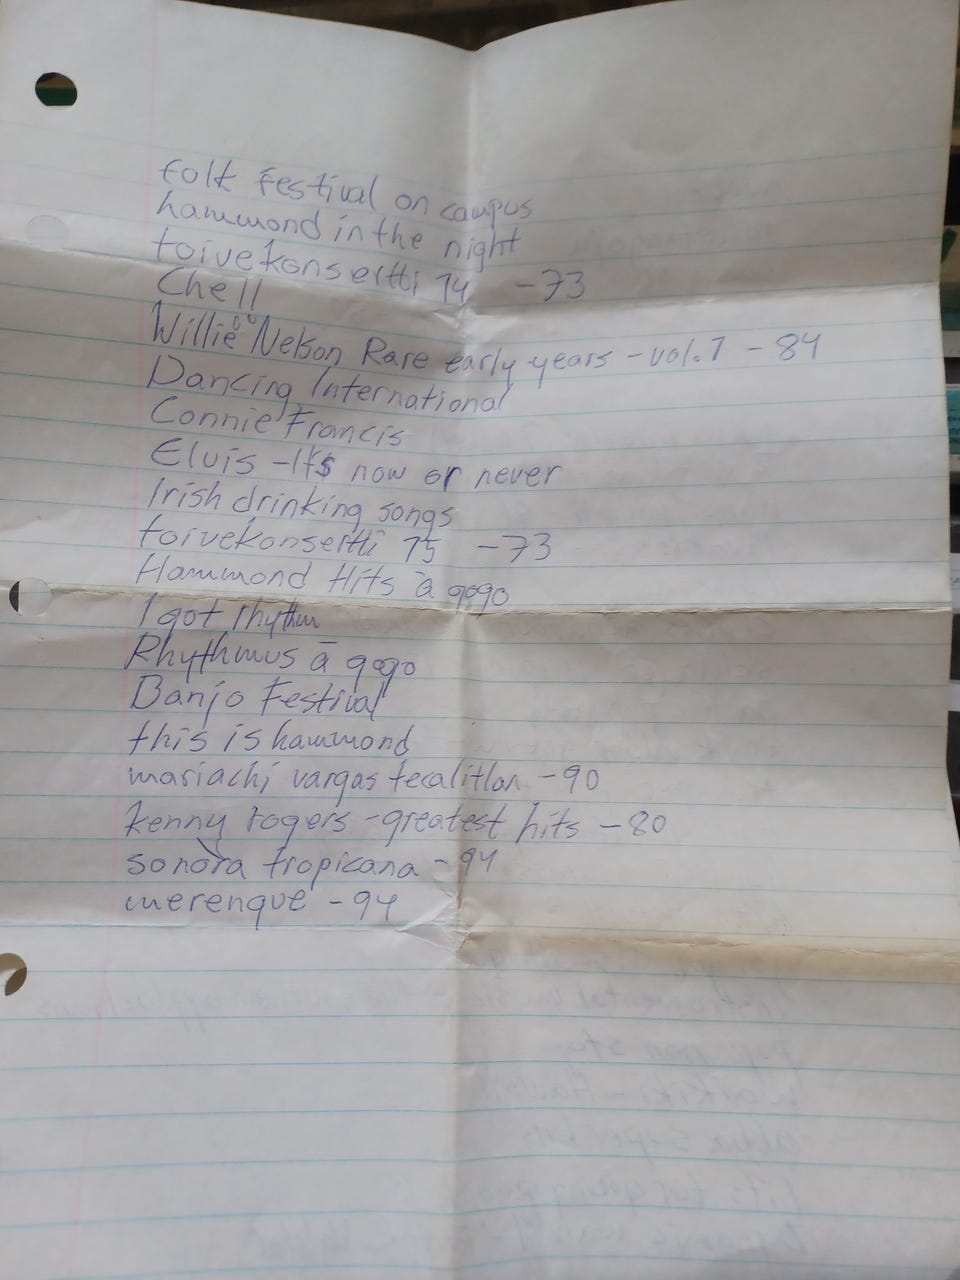 folk festival on campus
hammond in the night
toivekonsertti 14 -73
Chell
Willie Nelson Rare early years - vol. 1 - 84
Dancing International
Connie Francis
Elvis - It's now or never
Irish drinking songs
toivekonsertti 15 -73
Hammond Hits à gogo
I got rhythm
Rhythmus à gogo
Banjo Festival
this is hammond
mariachi vargas tecalitlan - 90
kenny rogers - greatest hits - 80
sonora tropicana - 94
merengue - 94